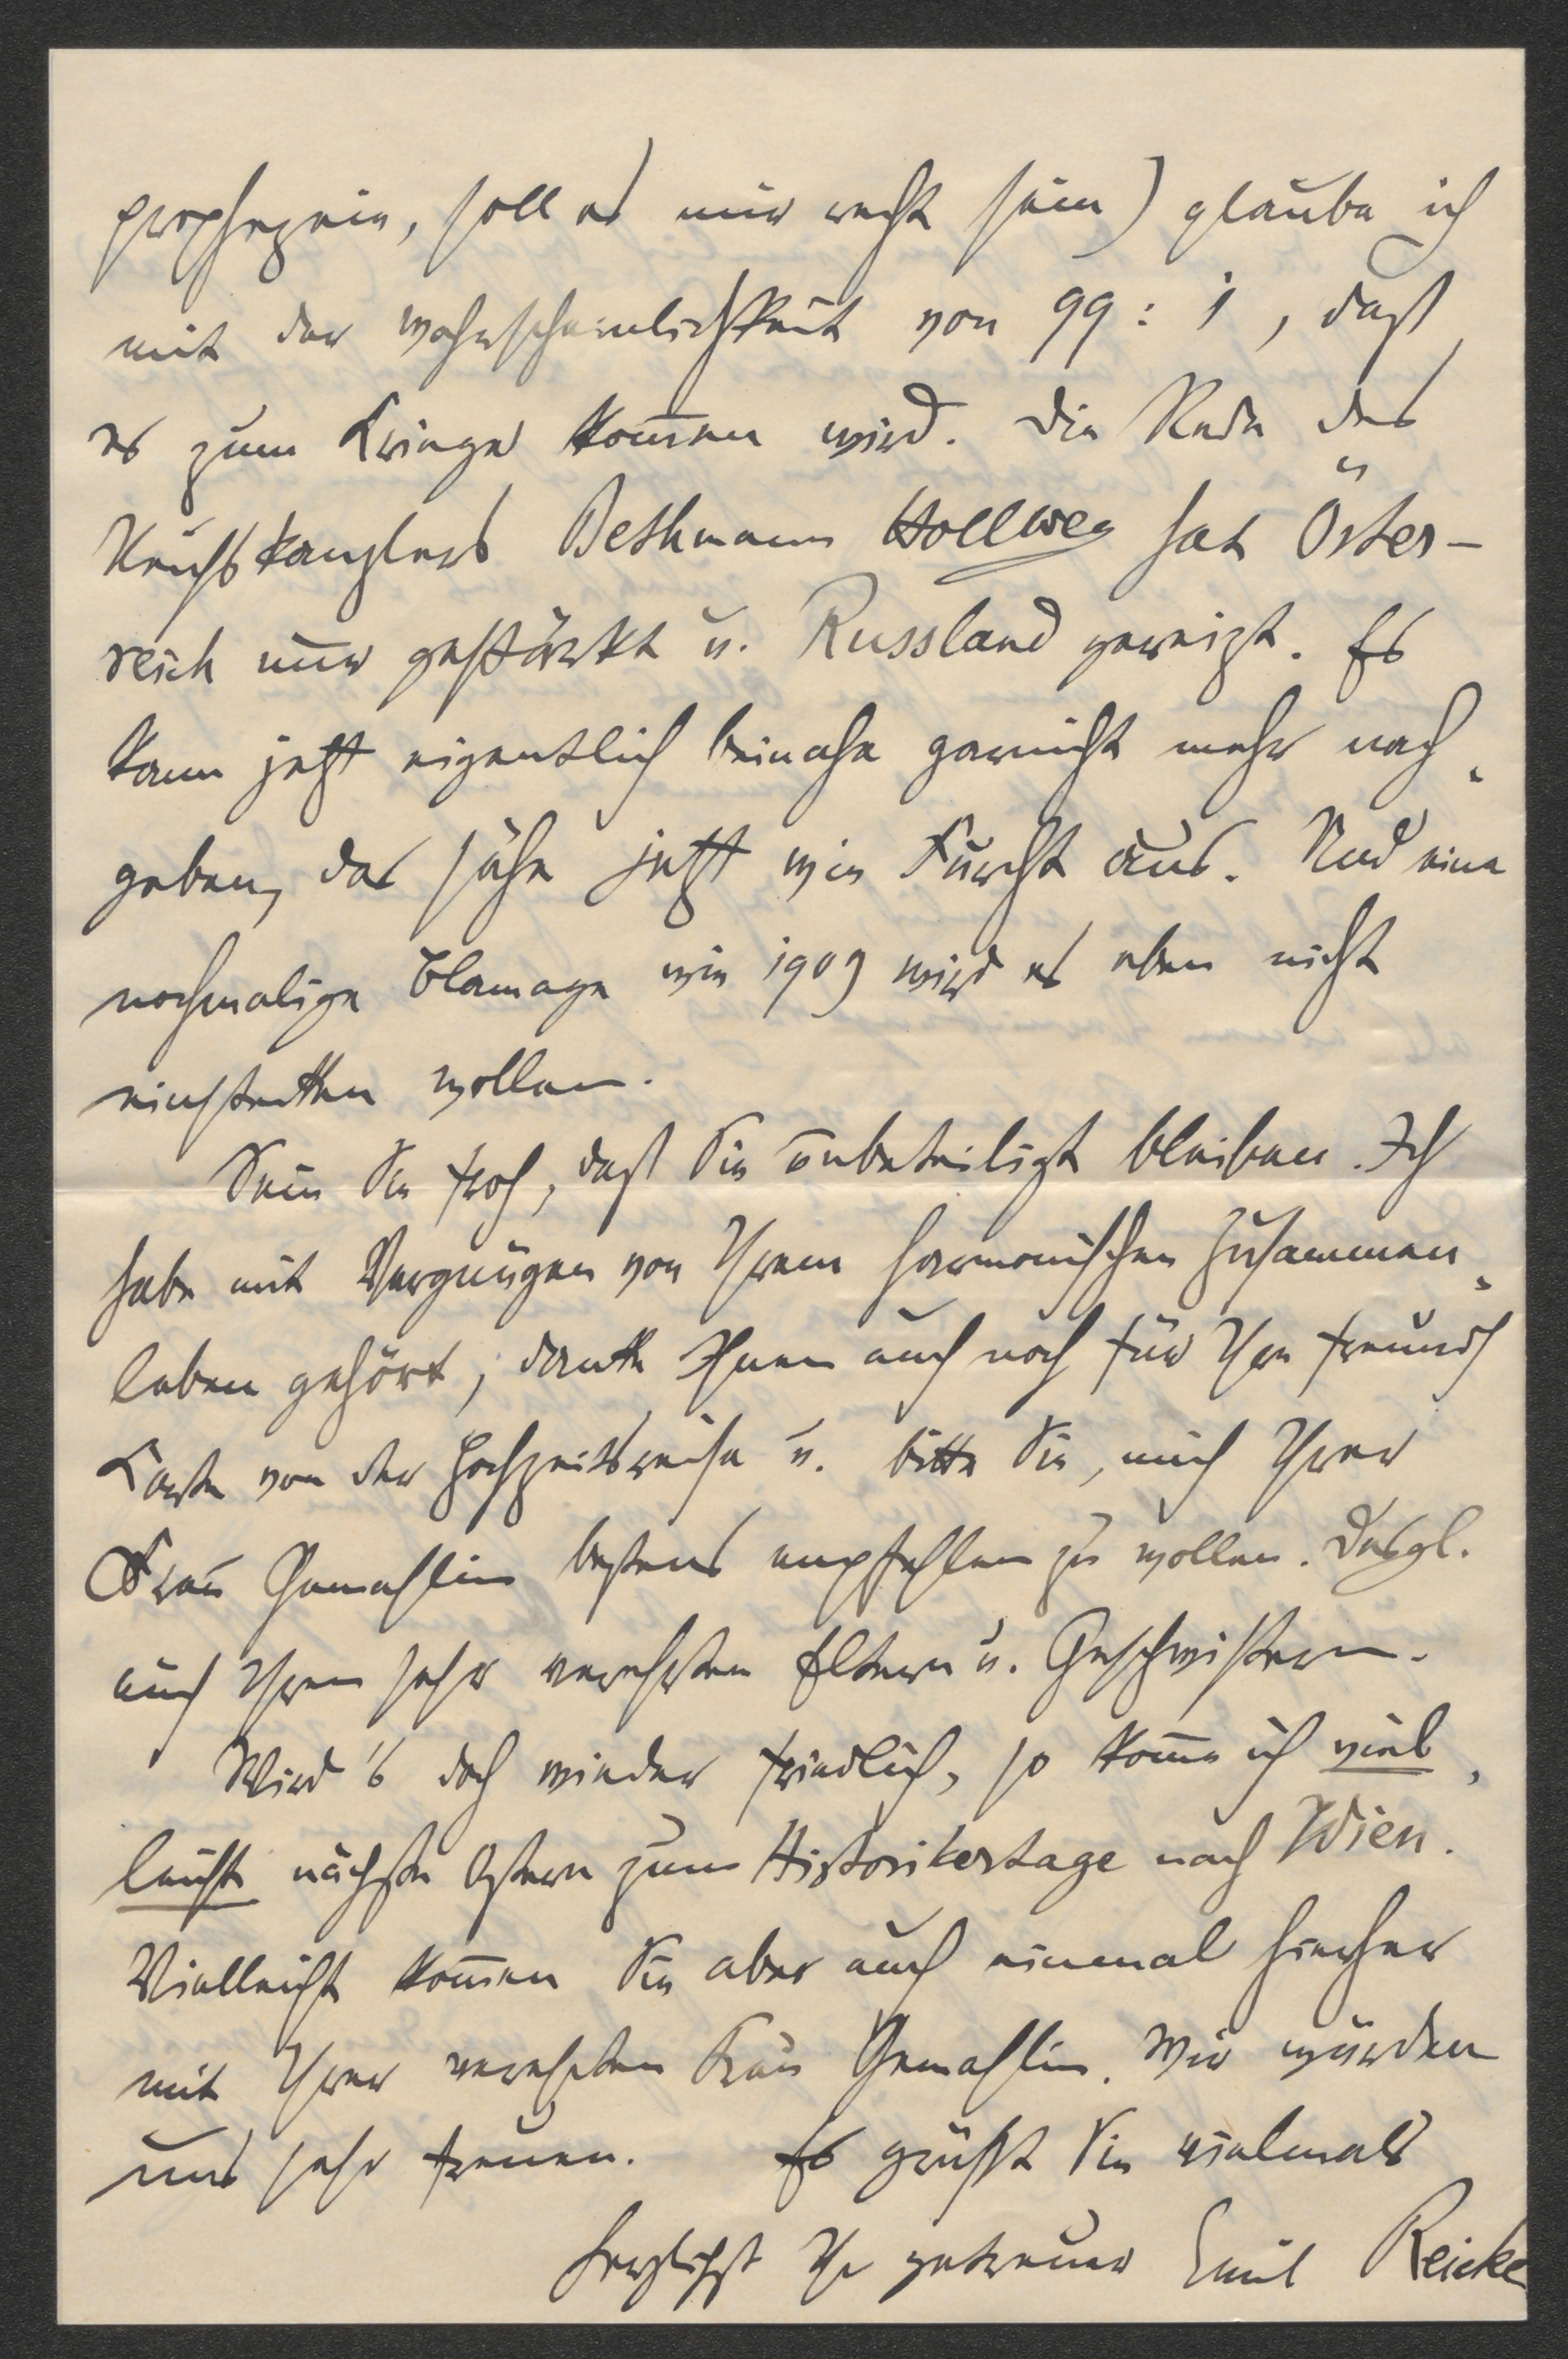 prophezeien, soll es mir recht sein) glaube ich
mit der Wahrscheinlichkeit von 99 : 1, daß
es zum Kriege kom̅en wird. Die Rede des
Reichskanzlers Bethmann Hollweg hat Öster-
reich nur gestärkt u. Russland gereizt. Es
kann jetzt eigentlich beinahe garnicht mehr nach-
geben, das sähe jetzt wie Furcht aus. Und eine
nochmalige Blamage wie 1909 wird es eben nicht
einstecken wollen.
Sein Sie froh, daß Sie unbeteiligt bleiben. Ich
habe mit Vergnügen von Ihrem harmonischen Zusammen-
leben gehört, danke Ihnen auch noch für Ihre freundl
Karte von der Hochzeitsreise u. bitte Sie, mich Ihrer
Frau Gemahlin bestens empfehlen zu wollen. Desgl.
auch Ihren sehr verehrten Eltern u. Geschwistern.
Wird's doch wieder friedlich, so kom̅e ich viel-
leicht nächste Ostern zum Historikertage nach Wien.
Vielleicht kom̅en Sie aber auch einmal hierher
mit Ihrer verehrten Frau Gemahlin. Wir würden
uns sehr freuen. Es grüßt Sie vielmals
herzlichst Ihr getreuer Emil Reicke